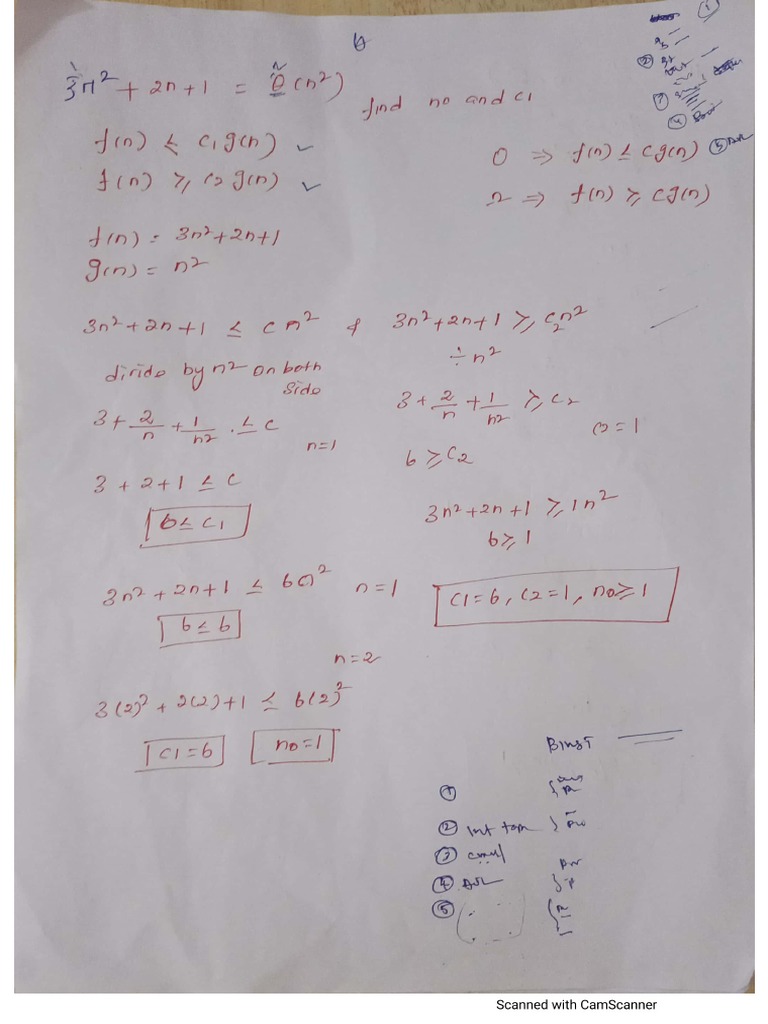 3n² + 2n + 1 = θ(n²)
find no and c1
f(n) ≤ c1g(n) ✓
f(n) ≥ c2g(n) ✓
O ⇒ f(n) ≤ cg(n)
Ω ⇒ f(n) ≥ cg(n)
f(n) = 3n²+2n+1
g(n) = n²
3n²+2n+1 ≤ cn² & 3n²+2n+1 ≥ c2n²
divide by n² on both
side
3 + 2/n + 1/n² ≤ c
n=1
3 + 2 + 1 ≤ c
6 ≤ c1
÷ n²
3 + 2/n + 1/n² ≥ c2
c2 = 1
6 ≥ c2
3n²+2n+1 ≥ 1n²
6 ≥ 1
3n² + 2n + 1 ≤ 6n² n=1
6 ≤ 6
c1=6, c2=1, no≥1
n=2
3(2)² + 2(2)+1 ≤ 6(2)²
c1=6 no=1
①
②
③
④
⑤
①
②
③
④
⑤
Scanned with CamScanner